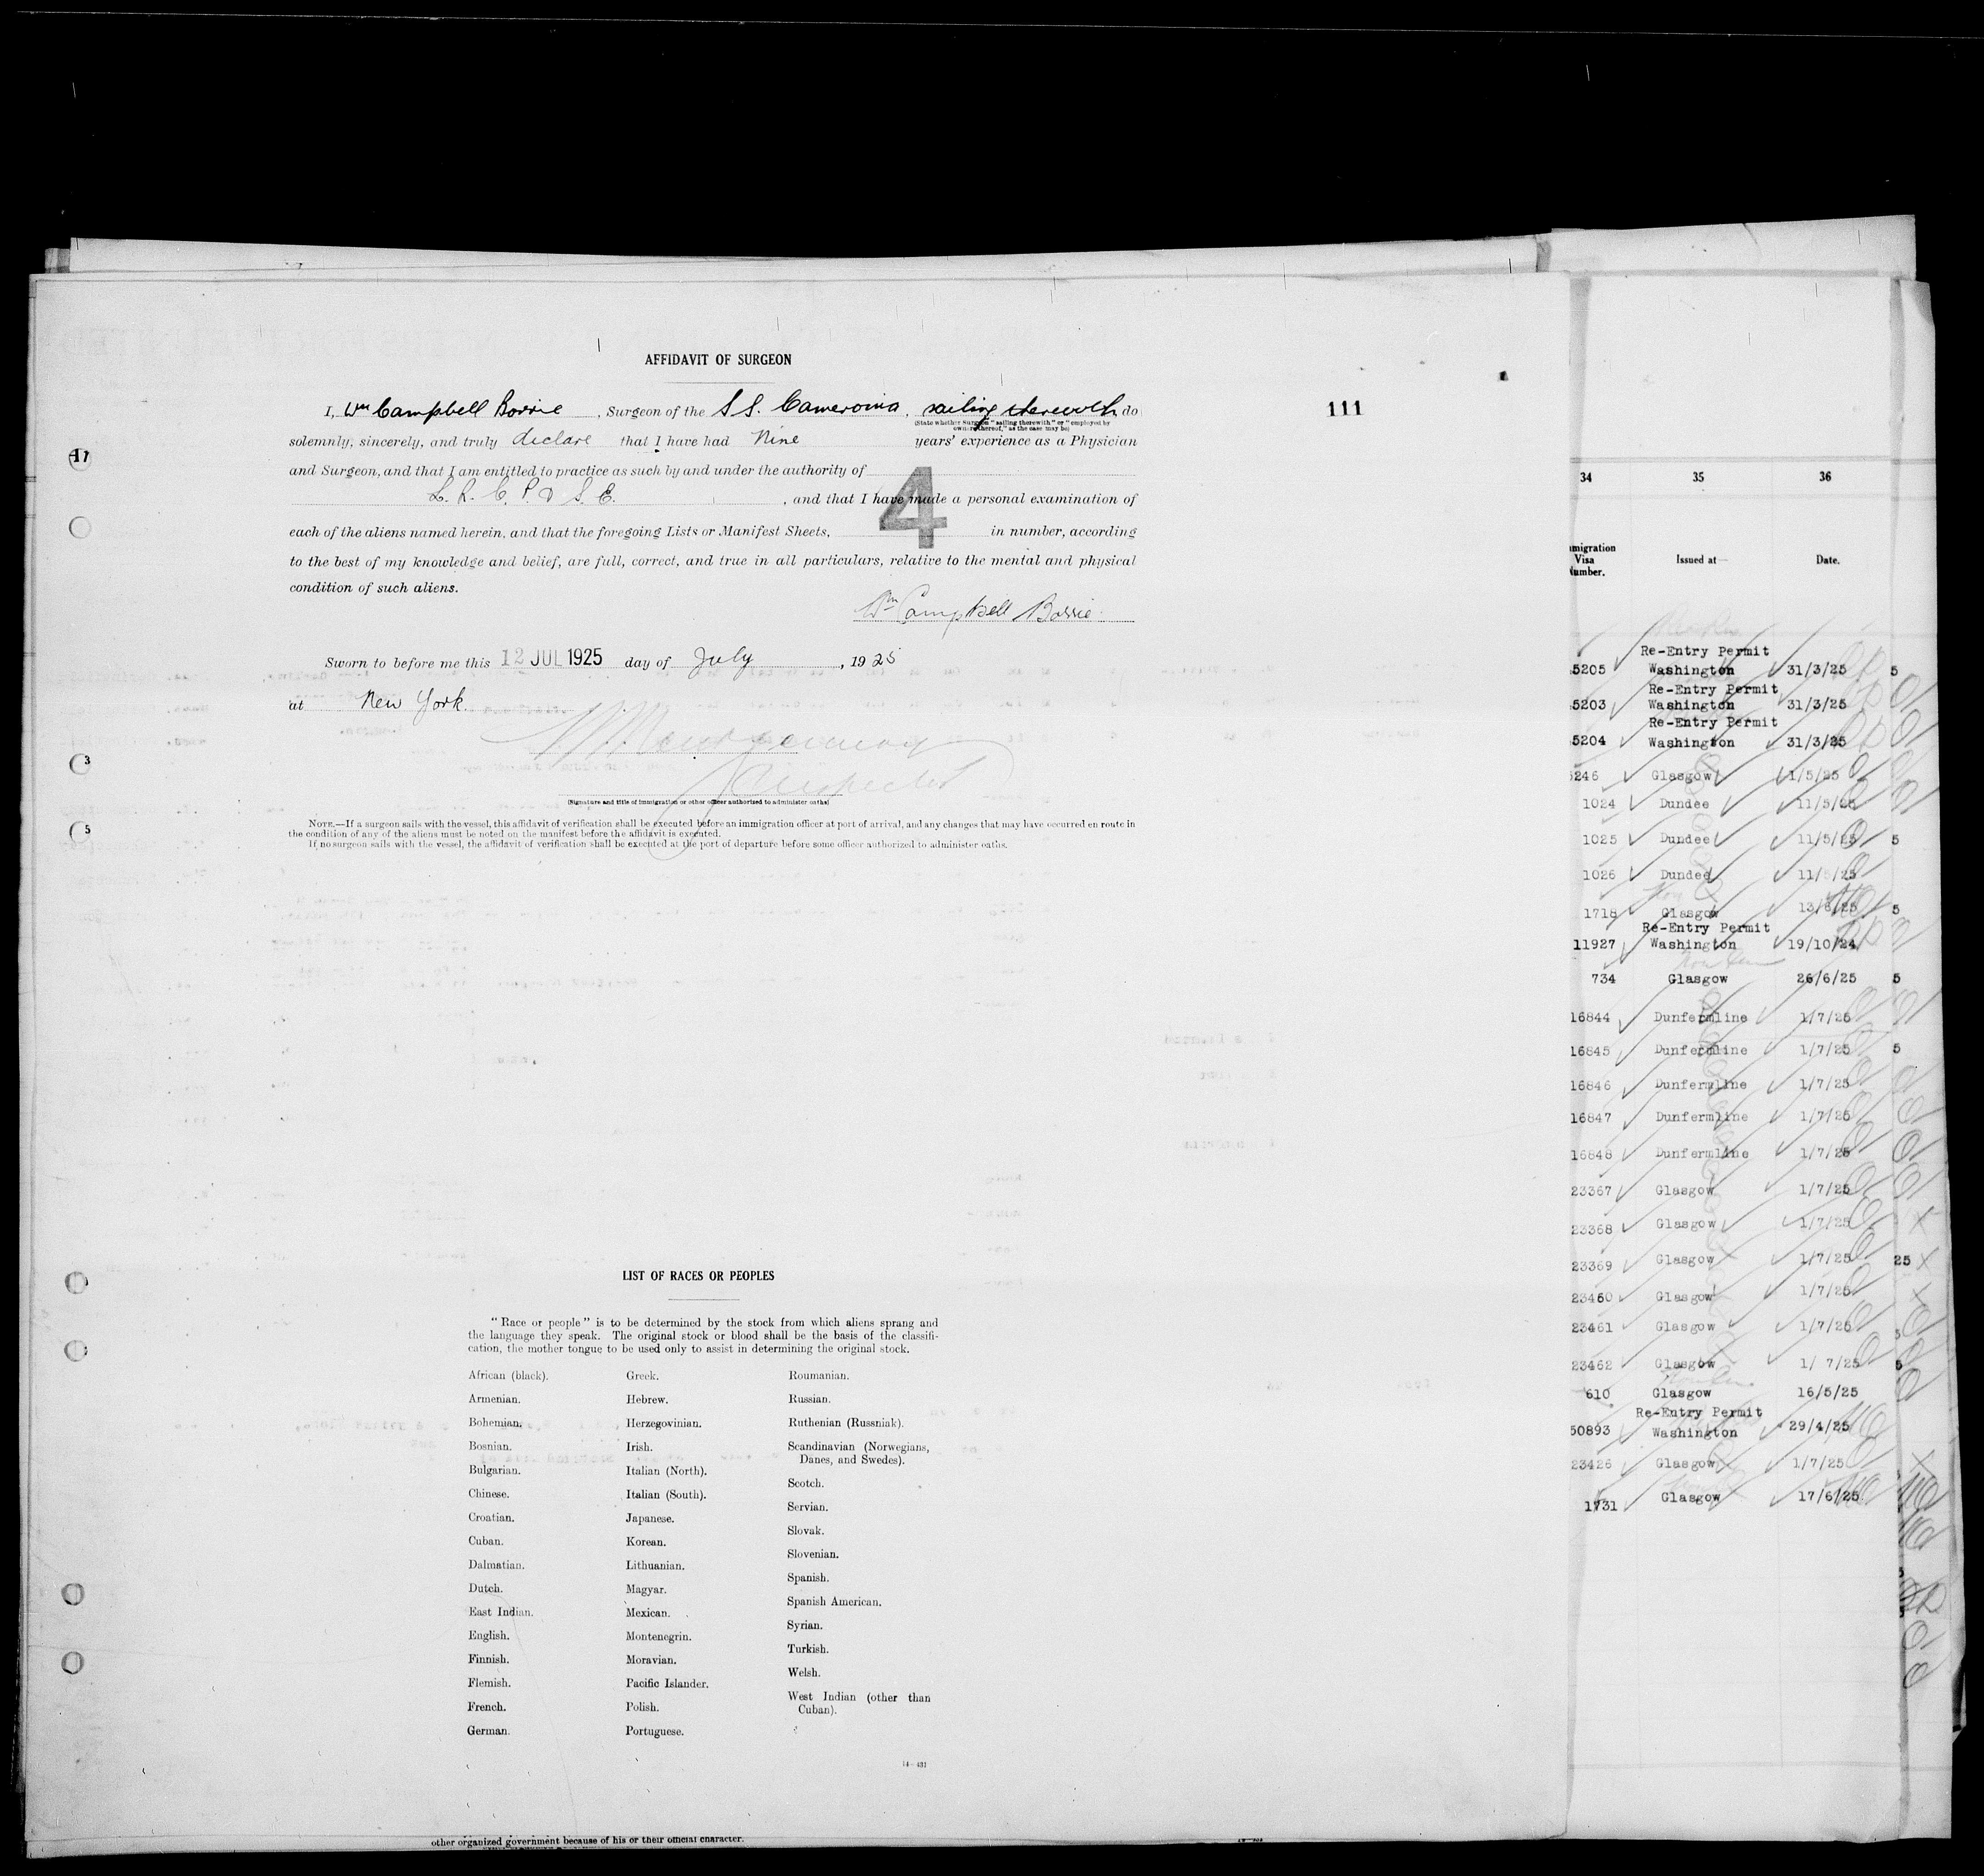 AFFIDAVIT OF SURGEON
I, Wm Campbell Borrie, Surgeon of the S.S. Cameronia, sailing therewith do
(State whether Surgeon "sailing therewith" or "employed by
owners thereof," as the case may be)
solemnly, sincerely, and truly declare that I have had Nine years' experience as a Physician
and Surgeon, and that I am entitled to practice as such by and under the authority of
L. R. C. P. & S. E. , and that I have made a personal examination of
each of the aliens named herein, and that the foregoing Lists or Manifest Sheets, 4 in number, according
to the best of my knowledge and belief, are full, correct, and true in all particulars, relative to the mental and physical
condition of such aliens.
Wm Campbell Borrie
Sworn to before me this 12 JUL 1925 day of July, 1925
at New York.
Inspector
(Signature and title of immigration or other officer authorized to administer oaths)
NOTE.—If a surgeon sails with the vessel, this affidavit of verification shall be executed before an immigration officer at port of arrival, and any changes that may have occurred en route in
the condition of any of the aliens must be noted on the manifest before the affidavit is executed.
If no surgeon sails with the vessel, the affidavit of verification shall be executed at the port of departure before some officer authorized to administer oaths.
111
3
5
LIST OF RACES OR PEOPLES
"Race or people" is to be determined by the stock from which aliens sprang and
the language they speak. The original stock or blood shall be the basis of the classifi-
cation, the mother tongue to be used only to assist in determining the original stock.
African (black).
Armenian.
Bohemian.
Bosnian.
Bulgarian.
Chinese.
Croatian.
Cuban.
Dalmatian.
Dutch.
East Indian.
English.
Finnish.
Flemish.
French.
German.
Greek.
Hebrew.
Herzegovinian.
Irish.
Italian (North).
Italian (South).
Japanese.
Korean.
Lithuanian.
Magyar.
Mexican.
Montenegrin.
Moravian.
Pacific Islander.
Polish.
Portuguese.
Roumanian.
Russian.
Ruthenian (Russniak).
Scandinavian (Norwegians,
Danes, and Swedes).
Scotch.
Servian.
Slovak.
Slovenian.
Spanish.
Spanish American.
Syrian.
Turkish.
Welsh.
West Indian (other than
Cuban).
14—431
other organized government because of his or their official character.
34 35 36
mmigration
Visa
Number.
Issued at—
Date.
Re-Entry Permit
5205 Washington 31/3/25 5
Re-Entry Permit
5203 Washington 31/3/25
Re-Entry Permit
5204 Washington 31/3/25
246 Glasgow 1/5/25
1024 Dundee 11/5/25
1025 Dundee 11/5/25 5
1026 Dundee 11/5/25
1718 Glasgow 13/6/25 5
Re-Entry Permit
11927 Washington 19/10/24
734 Glasgow 26/6/25 5
16844 Dunfermline 1/7/25
16845 Dunfermline 1/7/25 5
16846 Dunfermline 1/7/25
16847 Dunfermline 1/7/25
16848 Dunfermline 1/7/25
23367 Glasgow 1/7/25
23368 Glasgow 1/7/25
23369 Glasgow 1/7/25 25
23460 Glasgow 1/7/25
23461 Glasgow 1/7/25 5
23462 Glasgow 1/ 7/25 5
610 Glasgow 16/5/25
Re-Entry Permit
50893 Washington 29/4/25
23426 Glasgow 1/7/25
1731 Glasgow 17/6/25